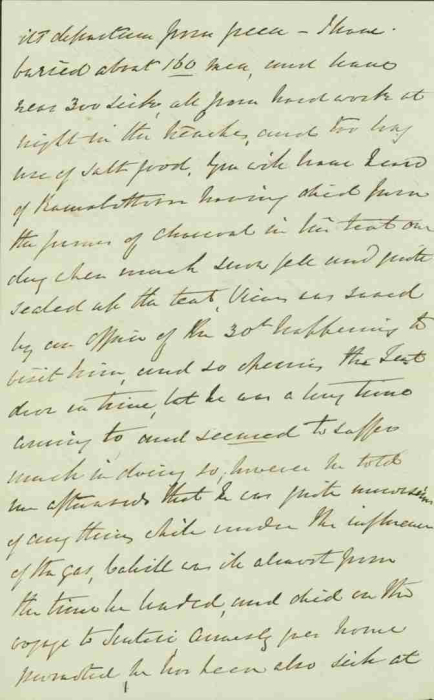 its departure from
buried about 160 men, and have
near 300 sick, all from hard work at
night in the trenches, and too long
use of salt food. You will have heard
of Ramsbottom having died from
the fumes of charcoal in his tent one
day when much snow fell and quite
sealed up the tent, was saved
by an officer of the 30th happening to
visit him, and so opening the tent
door in time, but he was a long time
coming to and seemed to suffer
much in doing so, however he told
me afterwards that he was quite unconscious
of any thing while under the influence
of the gas, Cahill was ill almost from
the time he landed, and died on the
voyage to Scutari Annesly just home
promoted he has been also sick at